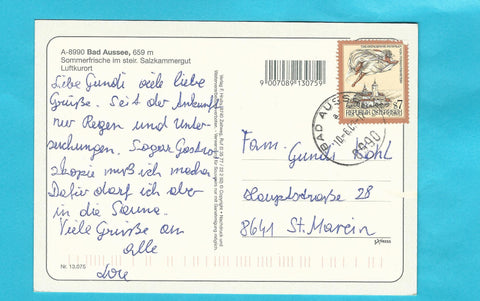 A-8990 Bad Aussee, 659 m
Sommerfrische im steir. Salzkammergut
Luftkurort
Liebe Gundi viele liebe
Grüße. Seit der Ankunft
nur Regen und Unter-
suchungen. Sogar Gastro-
skopie muß ich machen
Dafür darf ich aber
in die Sauna.
Viele Grüße an
alle
Lore
Nr. 13.075
9007089130759
BAD AUSSEE
8990
REPUBLIK ÖSTERREICH
S 7
Fam. Gundi Kohl
Hauptstraße 28
8641 St. Marein